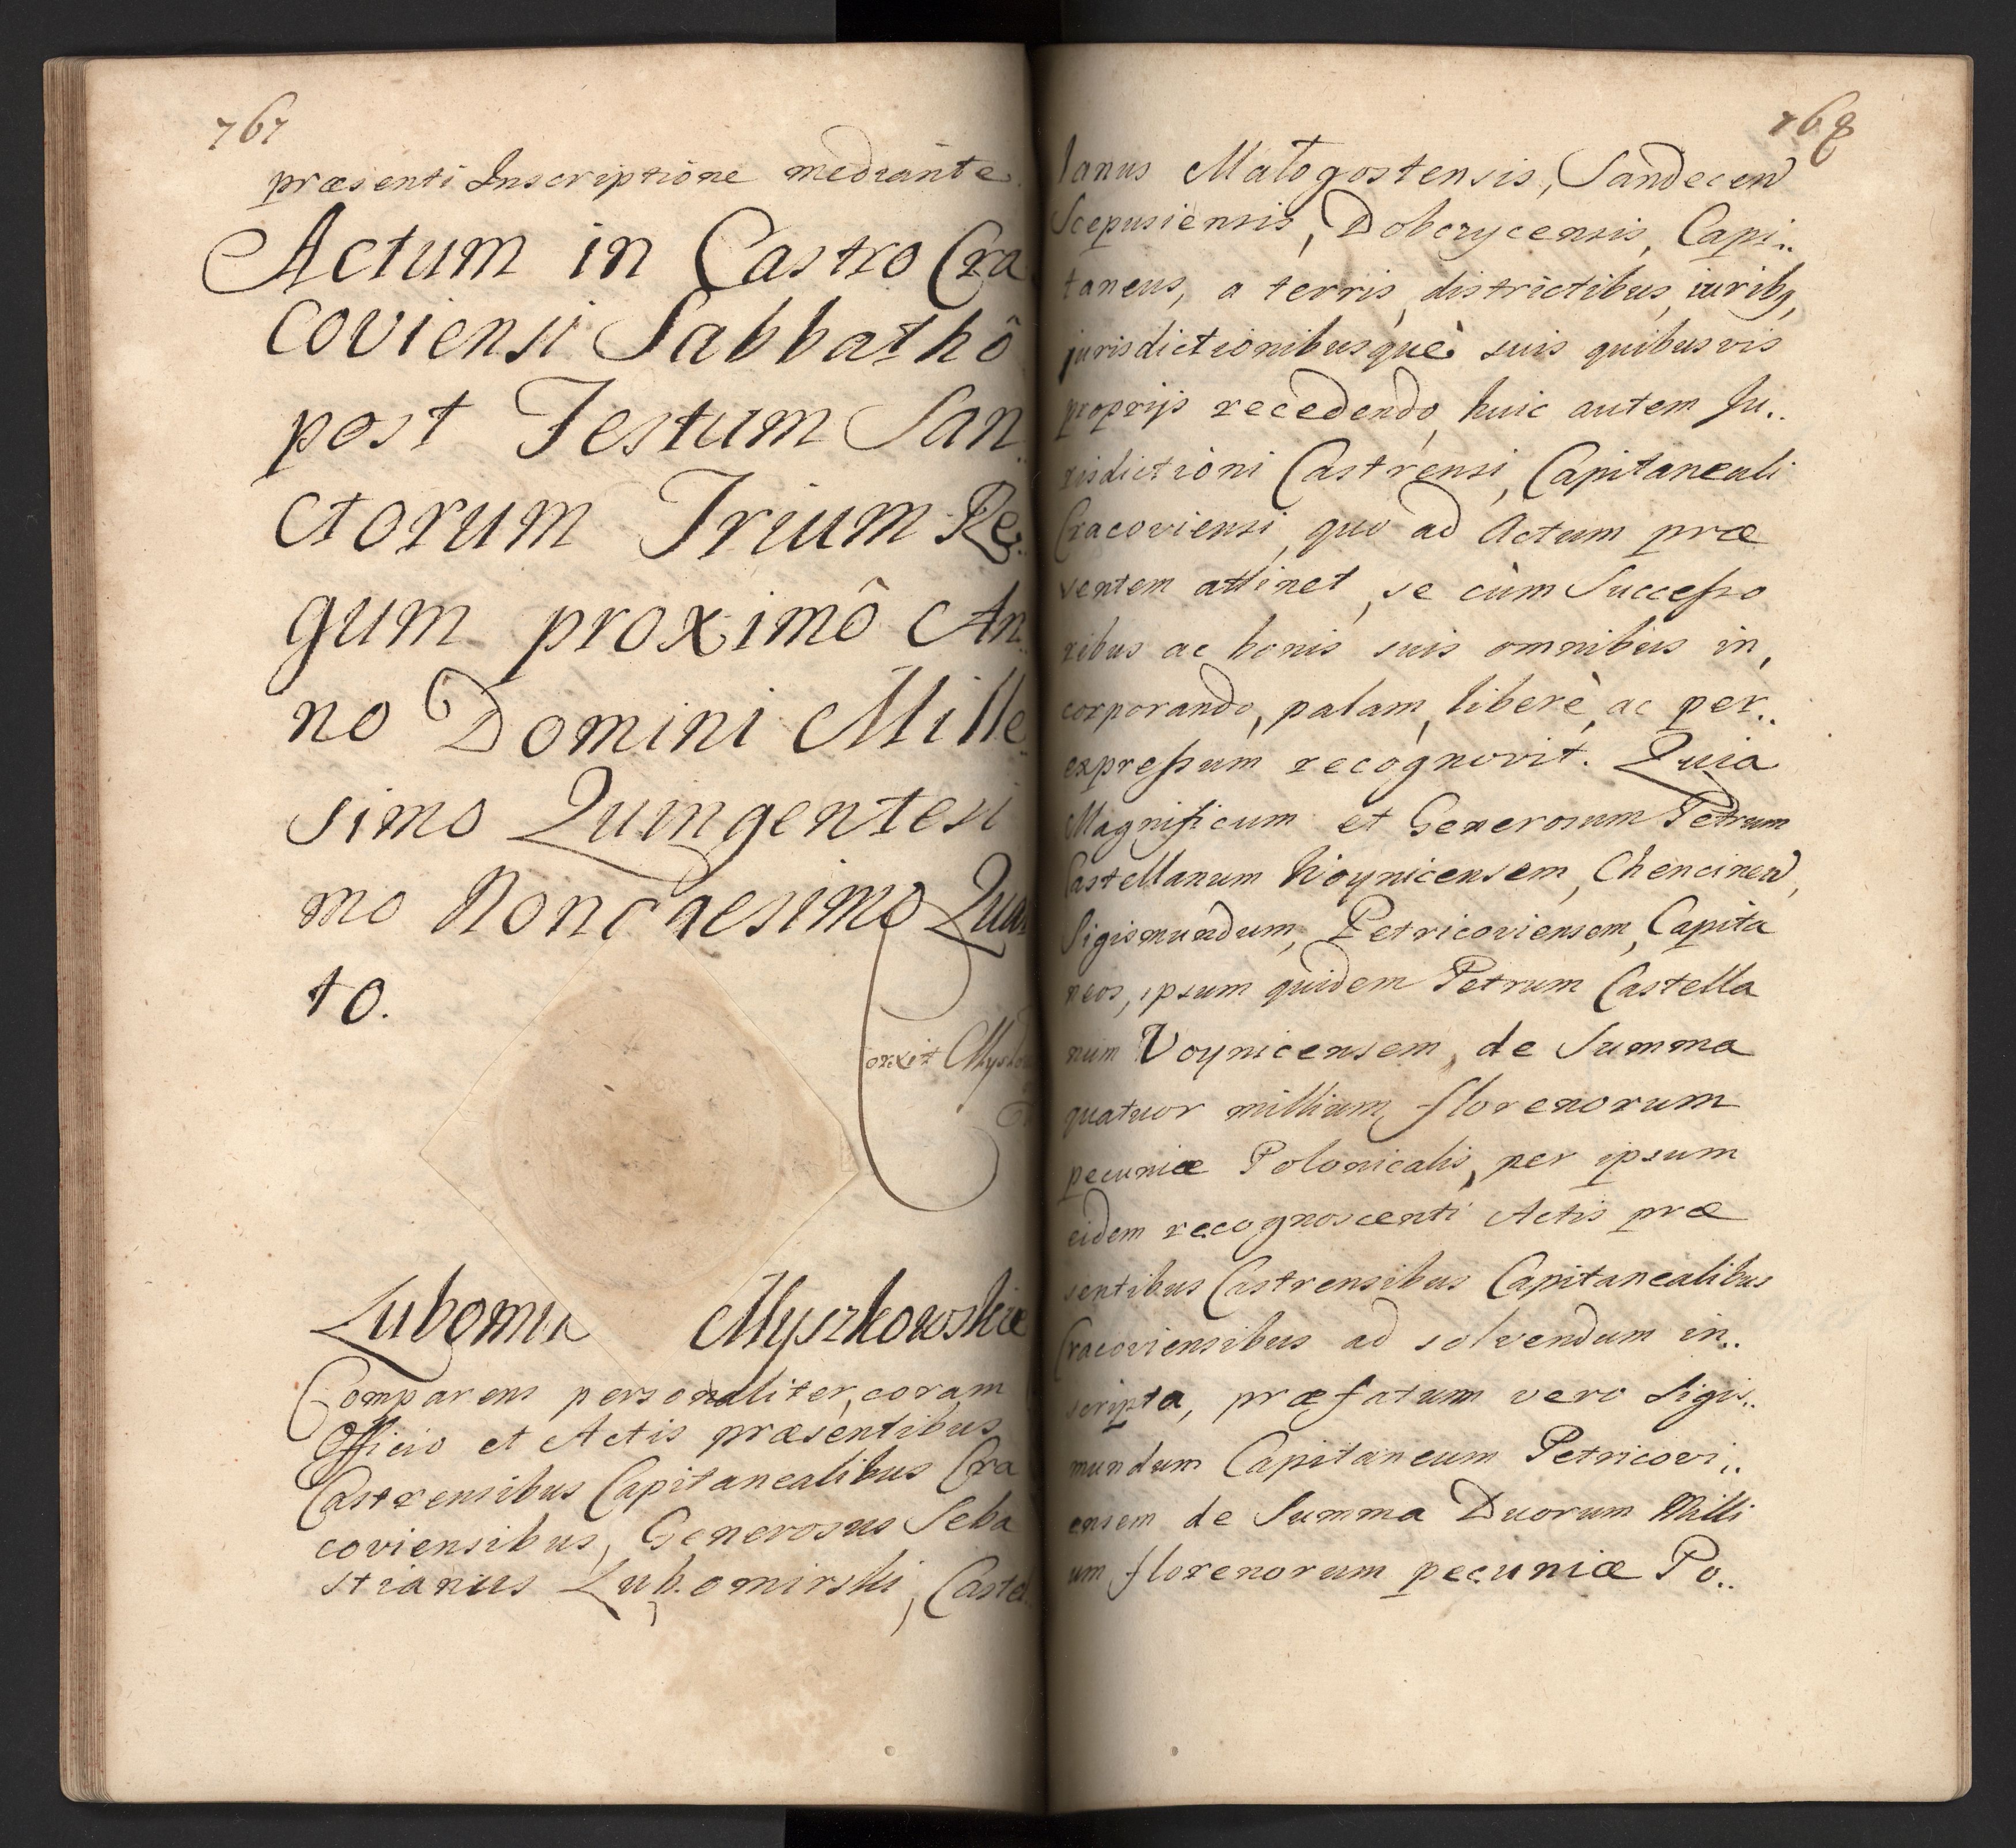 767
præsenti Inscriptione mediante
Actum in Castro Cra
coviensi Sabbathô
post Festum San..
ctorum Trium Re..
gum proximô An..
no Domini Mille..
simo Quingentesi
mo Nonagesimo Quar
to.
orexit
Lubomir Myszkowskie
Comparens personaliter, coram
Officio et Actis præsentibus
Castrensibus Capitanealibus Cra
coviensibus, Generosus Seba
stianus Lubomirski, Castel
768
lanus Małogostensis, Sandecen
Scepusiensis, Dobczycensis, Capi..
taneus, a terris, districtibus, iuribq,
jurisdictionibusquè suis quibusvis
proprijs recedendo, huic autem Ju..
risdictioni Castrensi, Capitaneali
Cracoviensi, quo ad Actum præ
sentem attinet, se cùm Successo
ribus ac bonis suis omnibus in,
corporando, palam, liberè, ac per..
expressum recognovit. Quia
Magnificum et Generosum Petrum
Castellanum Woynicensem, Chencinen,
Sigismundum, Petricoviensem, Capita
neos, ipsum quidem Petrum Castella
num Voynicensem, de Summa
quatuor millium florenorum
pecuniæ Polonicalis, per ipsum
eidem recognoscenti Actis præ
sentibus Castrensibus Capitanealibus
Cracoviensibus ad solvendum in..
scripta, præfatum vero Sigis..
mundum Capitaneum Petricovi..
ensem de Summa Duorum Milli
um florenorum pecuniæ Po..